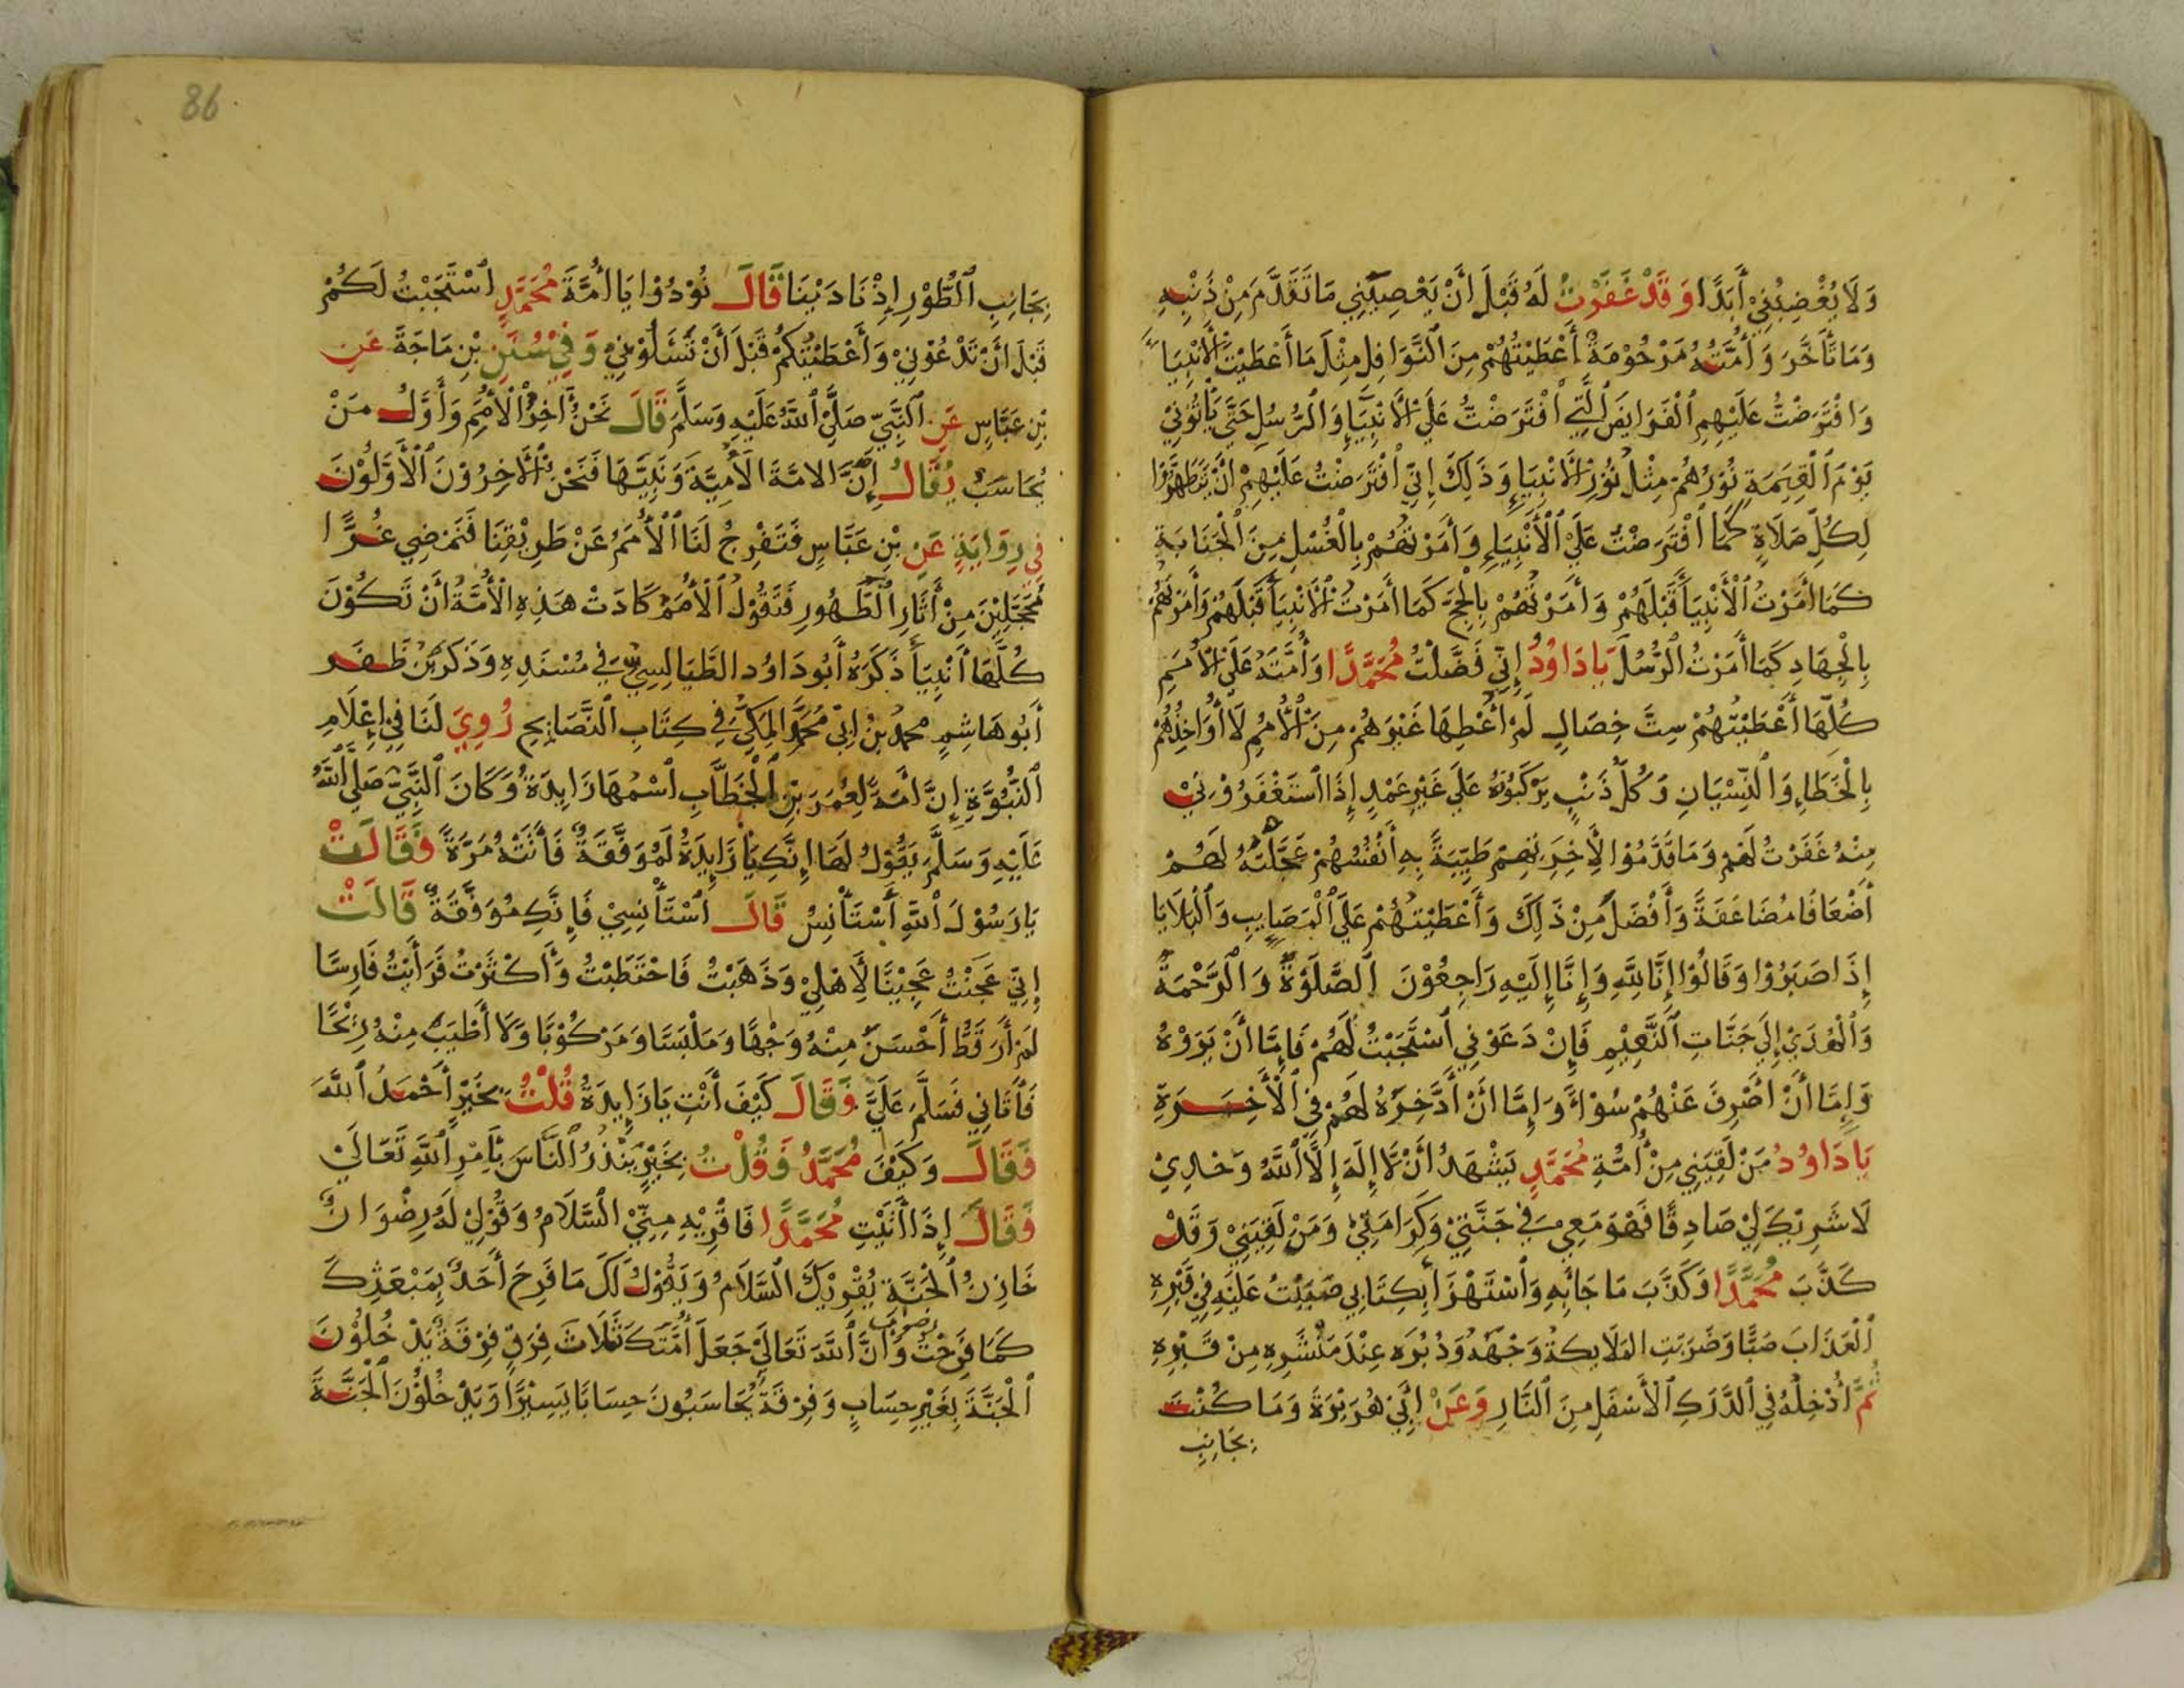 وَلَا يُغْضِبُنِي أَبَدًا وَقَدْ غَفَرْتُ لَهُ قَبْلَ أَنْ يَعْصِيَنِي مَا تَقَدَّمَ مِنْ ذَنْبِهِ
وَمَا تَأَخَّرَ وَأُمَّتُهُ مَرْحُوْمَةٌ أَعْطَيْتُهُمْ مِنَ النَّوَافِلِ مِثْلَ مَا أَعْطَيْتُ الْأَنْبِيَاءَ
وَافْتَرَضْتُ عَلَيْهِمِ الْفَرَايِضَ الَّتِي افْتَرَضْتُ عَلَى الْأَنْبِيَاءِ وَالرُّسُلِ حَتَّى يَأْتُوْنِيْ
يَوْمَ الْقِيَمَةِ نُوْرُهُمْ مِثْلُ نُوْرِ الْأَنْبِيَاءِ وَذَلِكَ إِنِّي افْتَرَضْتُ عَلَيْهِمْ أَنْ يَتَطَهَّرُوْا
لِكُلِّ صَلَاةٍ كَمَا افْتَرَضْتُ عَلَى الْأَنْبِيَاءِ وَأَمَرْتُهُمْ بِالْغُسْلِ مِنَ الْجَنَابَةِ
كَمَا أَمَرْتُ الْأَنْبِيَاءَ قَبْلَهُمْ وَأَمَرْتُهُمْ بِالْحَجِّ كَمَا أَمَرْتُ الْأَنْبِيَاءَ قَبْلَهُمْ وَأَمَرْتُهُمْ
بِالْجِهَادِ كَمَا أَمَرْتُ الرُّسُلَ يَا دَاوُدُ إِنِّي فَضَّلْتُ مُحَمَّدًا وَأُمَّتَهُ عَلَى الْأُمَمِ
كُلِّهَا أَعْطَيْتُهُمْ سِتَّ خِصَالٍ لَمْ أُعْطِهَا غَيْرَهُمْ مِنَ الْأُمَمِ لَا أُوَاخِذُهُمْ
بِالْخَطَاءِ وَالنِّسْيَانِ وَكُلُّ ذَنْبٍ يَرْكَبُوْنَهُ عَلَى غَيْرِ عَمْدٍ إِذَا اسْتَغْفَرُوْنِيْ
مِنْهُ غَفَرْتُ لَهُمْ وَمَا قَدَّمُوْا لِأَخِرَتِهِمْ طَيِّبَةً بِهِ أَنْفُسُهُمْ عَجَّلْتُهُ لَهُمْ
أَضْعَافًا مُضَاعَفَةً وَأَفْضَلُ مِنْ ذَلِكَ وَأَعْطَيْتُهُمْ عَلَى الْمَصَايِبِ وَالْبَلَايَا
إِذَا صَبَرُوْا وَقَالُوْا إِنَّا لِلَّهِ وَإِنَّا إِلَيْهِ رَاجِعُوْنَ الصَّلَوةَ وَالرَّحْمَةَ
وَالْهُدَيْ إِلَى جَنَّاتِ النَّعِيْمِ فَإِنْ دَعَوْنِي اسْتَجَبْتُ لَهُمْ فَإِمَّا أَنْ يَرَوْهُ
وَإِمَّا أَنْ أَصْرِفَ عَنْهُمْ سُوْاءً وَإِمَّا أَنْ أَدَّخِرَهُ لَهُمْ فِي الْأَخِرَةِ
يَا دَاوُدُ مَنْ لَقِيَنِي مِنْ أُمَّةِ مُحَمَّدٍ يَشْهَدُ أَنْ لَا إِلَهَ إِلَّا اللَّهُ وَحْدِيْ
لَا شَرِيْكَ لِيْ صَادِقًا فَهُوَ مَعِي فِي جَنَّتِيْ وَكَرَامَتِيْ وَمَنْ لَقِيَنِيْ وَقَدْ
كَذَّبَ مُحَمَّدًا وَكَذَّبَ مَا جَائَبِهِ وَاسْتَهْزَأَ بِكِتَابِي صَبَبْتُ عَلَيْهِ فِي قَبْرِهِ
الْعَذَابَ صَبًّا وَضَرَبَتِ الْمَلَايِكَةُ وَجْهَهُ وَدُبُرَهُ عِنْدَ مَنْشَرِهِ مِنْ قَبْرِهِ
ثُمَّ أُدْخِلُهُ فِي الدَّرَكِ الْأَسْفَلِ مِنَ النَّارِ وَعَنْ أَبِيْ هُرَيْرَةَ وَمَا كُنْتَ
بِجَانِبِ
86
بِجَانِبِ الطُّوْرِ إِذْ نَادَيْنَا قَالَ نُوْدُوْا يَا أُمَّةَ مُحَمَّدٍ اسْتَجَبْتُ لَكُمْ
قَبْلَ أَنْ تَدْعُوْنِيْ وَأَعْطَيْتُكُمْ قَبْلَ أَنْ تَسْئَلُوْنِيْ وَفِيْ سُنَنِ بْنِ مَاجَةَ عَنِ
بْنِ عَبَّاسٍ عَنِ النَّبِيِّ صَلَّى اللَّهُ عَلَيْهِ وَسَلَّمَ قَالَ نَحْنُ أَخِرُ الْأُمَمِ وَأَوَّلُ مَنْ
يُحَاسَبُ يُقَالُ إِنَّ الامَّةَ الْأُمِّيَّةَ وَنَبِيَّهَا فَنَحْنُ الْأَخِرُوْنَ الْأَوَّلُوْنَ
فِي رِوَايَةٍ عَنِ بْنِ عَبَّاسٍ فَتَفْرِجُ لَنَا الْأُمَمُ عَنْ طَرِيْقِنَا فَنَمْضِي غُرًّا
مُحَجَّلِيْنَ مِنْ أَثَارِ الطَّهُورِ فَتَقُوْلُ الْأُمَمُ كَادَتْ هَذِهِ الْأُمَّةُ أَنْ تَكُوْنَ
كُلُّهَا أَنْبِيَاءَ ذَكَرَهُ أَبُو دَاوُد الطَّيَالِسِيُّ فِي مُسْنَدِهِ وَذَكَرَ بْنُ ظَفَر
أَبُو هَاشِمٍ مُحَمَّدُ بْنُ أَبِيْ مُحَمَّدٍ الْمَكِّيُّ فِي كِتَابِ النَّصَايِحِ رُوِيَ لَنَا فِيْ إِعْلَامِ
النُّبُوَّةِ إِنَّ أَمَةً لِعُمَرَ بْنِ الْخَطَّابِ اسْمُهَا زَايِدَةُ وَكَانَ النَّبِيُّ صَلَّى اللَّهُ
عَلَيْهِ وَسَلَّمَ يَقُوْلُ لَهَا إِنَّكِ يَا زَايِدَةُ لَمُوَفَّقَةٌ فَأَتَتْهُ مَرَّةً فَقَالَتْ
يَا رَسُوْلَ اللَّهِ أَسْتَأْنِسُ قَالَ اسْتَأْنِسِيْ فَإِنَّكِ مُوَفَّقَةٌ قَالَتْ
إِنِّي عَجَنْتُ عَجِيْنًا لِأَهْلِيْ وَذَهَبْتُ فَاحْتَطَبْتُ وَأَكْثَرْتُ فَرَأَيْتُ فَارِسًا
لَمْ أَرَ قَطُّ أَحْسَنَ مِنْهُ وَجْهًا وَمَلْبَسًا وَمَرْكُوْبًا وَلَا أَطْيَبَ مِنْهُ رِيْحًا
فَأَتَانِي فَسَلَّمَ عَلَيَّ وَقَالَ كَيْفَ أَنْتِ يَا زَايِدَةُ قُلْتُ بِخَيْرٍ أَحْمَدُ اللَّهَ
فَقَالَ وَكَيْفَ مُحَمَّدٌ فَقُلْتُ بِخَيْرٍ يُنْذِرُ النَّاسَ بِأَمْرِ اللَّهِ تَعَالَيْ
فَقَالَ إِذَا أَتَيْتِ مُحَمَّدًا فَاقْرِيْهِ مِنِّيْ السَّلَامُ وَقُوْلِيْ لَهُ رِضْوَانُ
خَازِنُ الْجَنَّةِ يُقْرِيْكَ السَّلَامُ وَيَقُوْلُ لَكَ مَا فَرِحَ أَحَدٌ بِمَبْعَثِكَ
كَمَا فَرِحْتُ وَأَنَّ اللَّهَ تَعَالَيْ جَعَلَ أُمَّتَكَ ثَلَاثَ فِرَقٍ فِرْقَةٌ يَدْخُلُوْنَ
الْجَنَّةَ بِغَيْرِ حِسَابٍ وَفِرْقَةٌ يُحَاسَبُونَ حِسَابًا يَسِيْرًا وَيَدْخُلُوْنَ الْجَنَّةَ